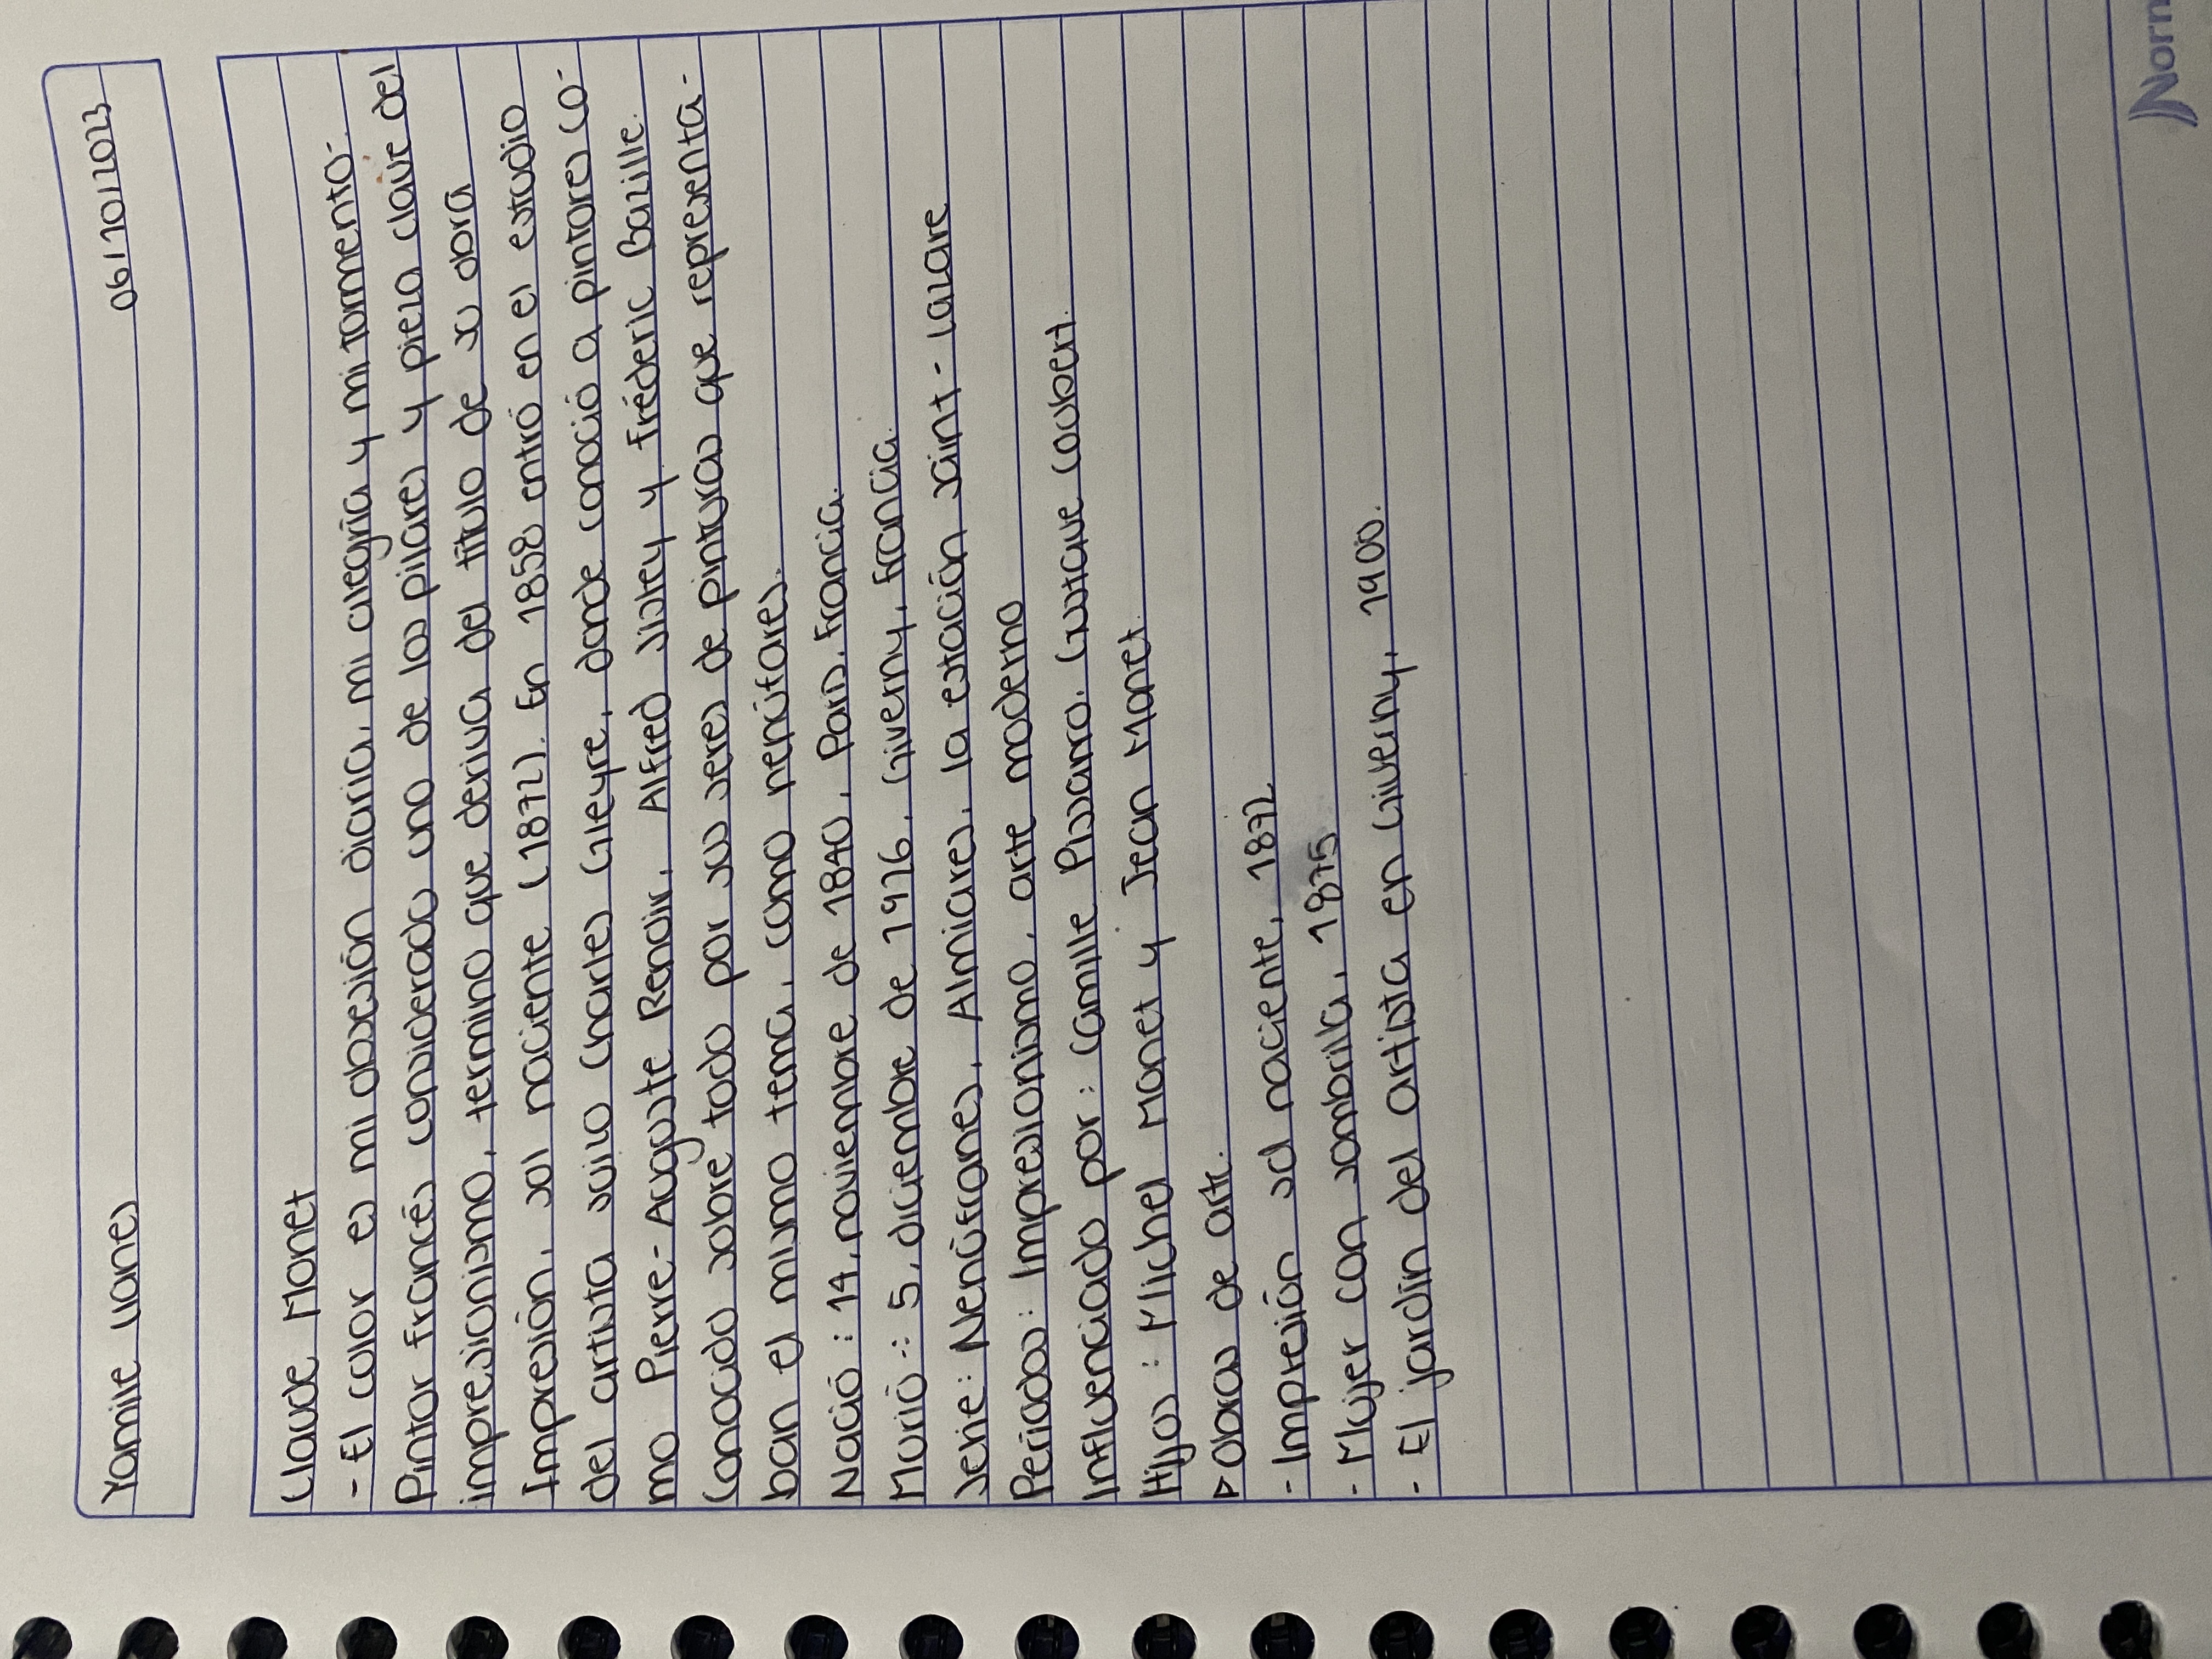 Yamile Llanes 06/10/2023
Claude Monet
- El color es mi obsesión diaria, mi alegría y mi tormento-
Pintor francés considerado uno de los pilares y pieza clave del
impresionismo, termino que deriva del título de su obra
Impresión, sol naciente (1872). En 1858 entró en el estudio
del artista suizo Charles Gleyre, donde conoció a pintores co-
mo Pierre-Auguste Renoir, Alfred Sisley y Fréderic Bazille.
Conocido sobre todo por sus series de pinturas que representa-
ban el mismo tema, como nenúfares.
Nació: 14, noviembre de 1840, París, Francia.
Murió: 5, diciembre de 1926, Giverny, Francia.
Serie: Almiares, la estación Saint-Lazare
Periodos: Impresionismo, arte moderno
Influenciado por: Camille Pissarro, Gustave Coubert.
Hijos: Michel Monet y Jean Monet.
▷ Obras de arte.
- Impresión sol naciente, 1872
- Mujer con sombrilla, 1875
- El jardín del artista en Giverny, 1900.
Norm